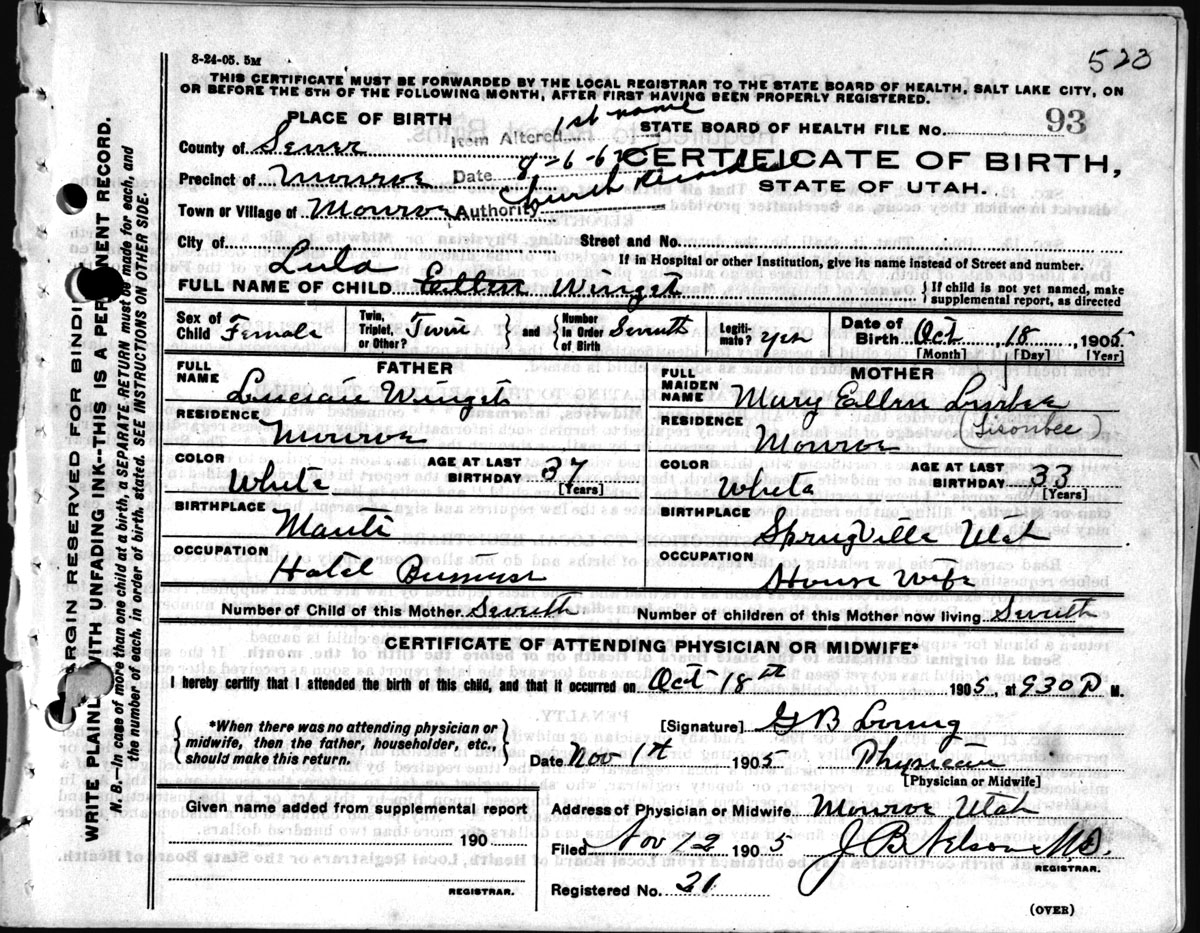 523
8-24-05. 5M
THIS CERTIFICATE MUST BE FORWARDED BY THE LOCAL REGISTRAR TO THE STATE BOARD OF HEALTH, SALT LAKE CITY, ON
OR BEFORE THE 5TH OF THE FOLLOWING MONTH, AFTER FIRST HAVING BEEN PROPERLY REGISTERED.
PLACE OF BIRTH
Item Altered 1st name
STATE BOARD OF HEALTH FILE NO. 93
County of Sevier
Date 9-6-6
CERTIFICATE OF BIRTH,
Precinct of Monroe
STATE OF UTAH.
Town or Village of Monroe
Authority Church Records
City of
Street and No.
If in Hospital or other Institution, give its name instead of Street and number.
Lula
FULL NAME OF CHILD Ellen Winget
{ If child is not yet named, make supplemental report, as directed
Sex of Child Female
Twin, Triplet, or Other? Twin } and { Number In Order of Birth Seventh
Legiti-mate? yes
Date of Birth Oct 18, 1905
[Month] [Day] [Year]
FATHER
FULL NAME Winget
RESIDENCE
Monroe
COLOR White
AGE AT LAST BIRTHDAY 37
[Years]
BIRTHPLACE
Manti
OCCUPATION
Hotel Business
MOTHER
FULL MAIDEN NAME Mary Ellen
RESIDENCE
Monroe (Lisonbee)
COLOR White
AGE AT LAST BIRTHDAY 33
[Years]
BIRTHPLACE
SpringVille Utah
OCCUPATION
House Wife
Number of Child of this Mother Seventh
Number of children of this Mother now living Seventh
CERTIFICATE OF ATTENDING PHYSICIAN OR MIDWIFE*
I hereby certify that I attended the birth of this child, and that it occurred on Oct 18th 1905, at 930 P M.
{ *When there was no attending physician or midwife, then the father, householder, etc., should make this return. }
[Signature] G B Loring
Date Nov 1st 1905 Physician
[Physician or Midwife]
Given name added from supplemental report
190
REGISTRAR.
Address of Physician or Midwife Monroe Utah
Filed Nov 12 1905 J B Nelson MD.
REGISTRAR.
Registered No. 21
(OVER)
MARGIN RESERVED FOR BINDING
WRITE PLAINLY WITH UNFADING INK--THIS IS A PERMANENT RECORD.
N. B.—In case of more than one child at a birth, a SEPARATE RETURN must be made for each, and
the number of each, in order of birth, stated. SEE INSTRUCTIONS ON OTHER SIDE.